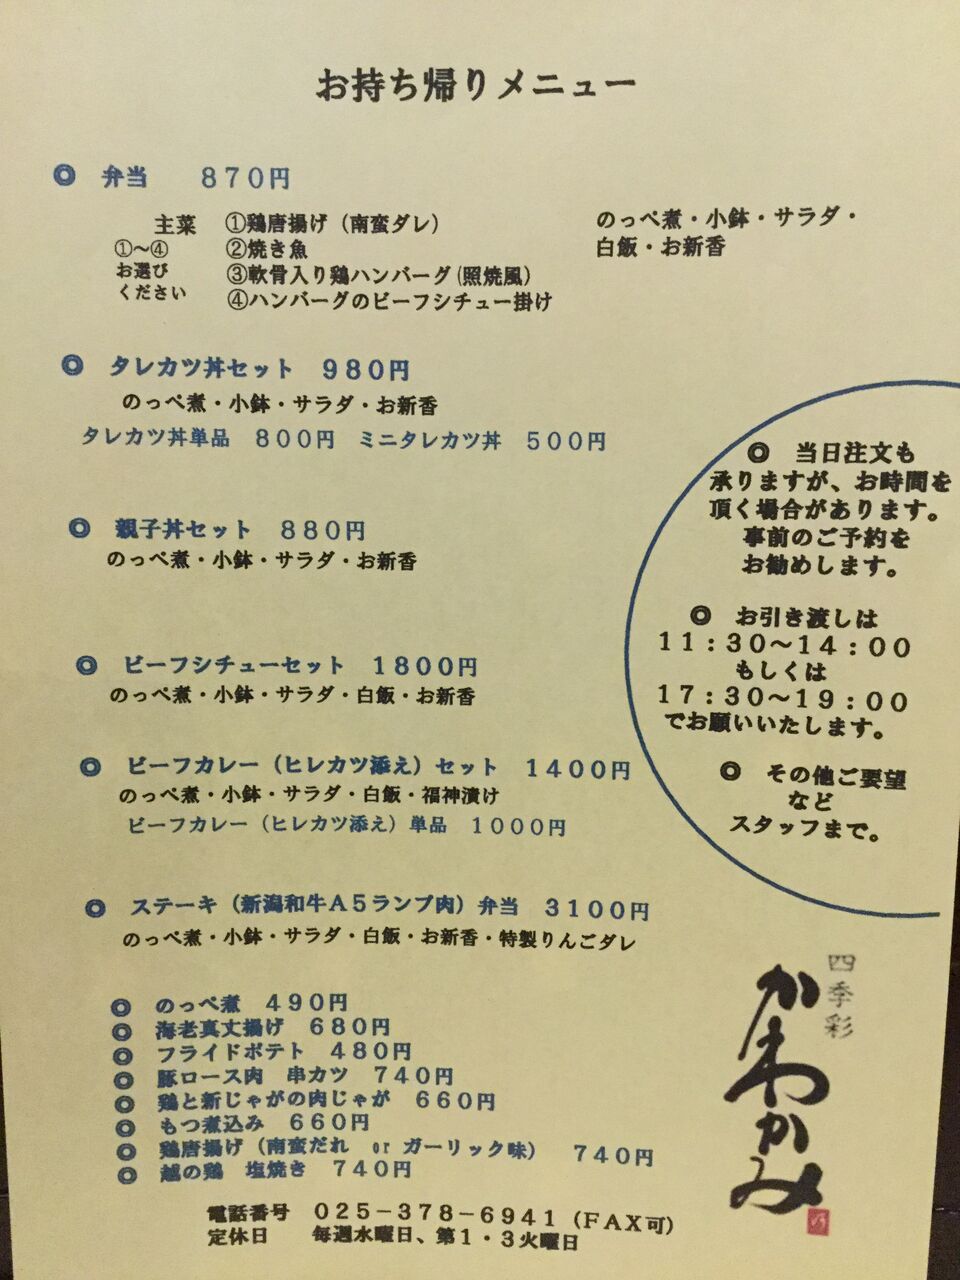 お持ち帰りメニュー
◎ 弁当 870円
主菜 ①鶏唐揚げ（南蛮ダレ）
①～④ ②焼き魚
お選び ③軟骨入り鶏ハンバーグ（照焼風）
ください ④ハンバーグのビーフシチュー掛け
のっぺ煮・小鉢・サラダ・
白飯・お新香
◎ タレカツ丼セット 980円
のっぺ煮・小鉢・サラダ・お新香
タレカツ丼単品 800円 ミニタレカツ丼 500円
◎ 親子丼セット 880円
のっぺ煮・小鉢・サラダ・お新香
◎ ビーフシチューセット 1800円
のっぺ煮・小鉢・サラダ・白飯・お新香
◎ ビーフカレー（ヒレカツ添え）セット 1400円
のっぺ煮・小鉢・サラダ・白飯・福神漬け
ビーフカレー（ヒレカツ添え）単品 1000円
◎ ステーキ（新潟和牛A5ランプ肉）弁当 3100円
のっぺ煮・小鉢・サラダ・白飯・お新香・特製りんごダレ
◎ のっぺ煮 490円
◎ 海老真丈揚げ 680円
◎ フライドポテト 480円
◎ 豚ロース肉 串カツ 740円
◎ 鶏と新じゃがの肉じゃが 660円
◎ もつ煮込み 660円
◎ 鶏唐揚げ（南蛮だれ or ガーリック味） 740円
◎ 越の鶏 塩焼き 740円
◎ 当日注文も
承りますが、お時間を
頂く場合があります。
事前のご予約を
お勧めします。
◎ お引き渡しは
11：30～14：00
もしくは
17：30～19：00
でお願いいたします。
◎ その他ご要望
など
スタッフまで。
四季彩
かわかみ
電話番号 025－378－6941（FAX可）
定休日 毎週水曜日、第1・3火曜日